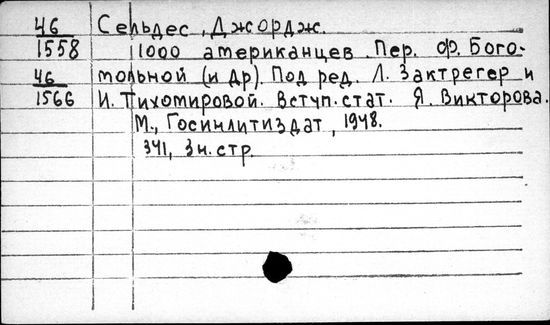 46 Сельдес, Джордж.
1558 1000 американцев. Пер. Ф. Бого-
46 мольной (и др). Под ред. Л. Зактрегер и
1566 И. Тихомировой. Вступ. стат. Я. Викторова.
М., Госинлитиздат, 1948.
341, 3н. стр.